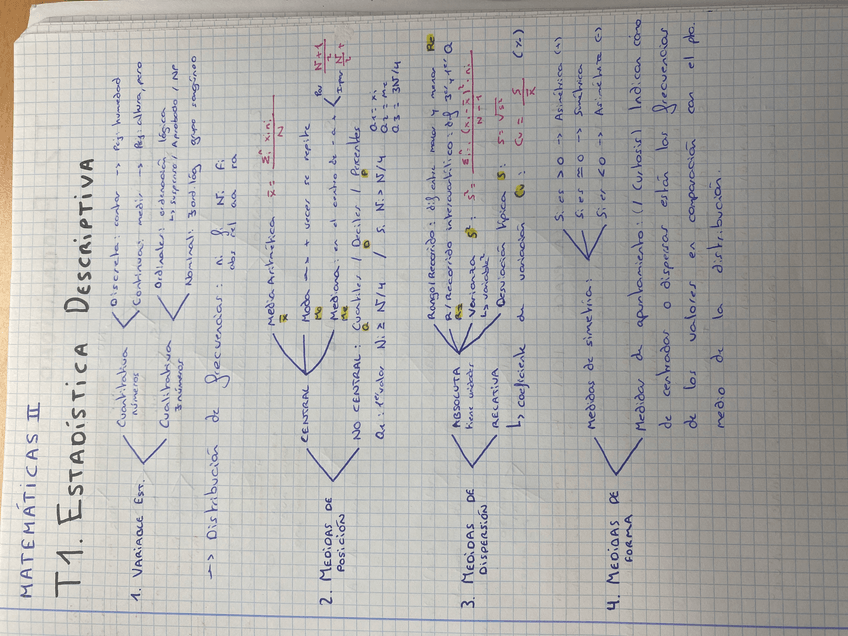 MATEMÁTICAS II
T1. ESTADÍSTICA DESCRIPTIVA
1. VARIABLE EST.
Cuantitativa
números
Discreta: contar → Pej: humedad
Continua: medir → Pej: altura, peso
Cualitativa
≠ números
Ordinales: ordenación lógica
↳ Suspenso / Aprobado / NP
Nominal: ∄ ord. lóg grupo sangíneo
→ Distribución de frecuencias: ni fi Ni Fi
abs rel aa ra
2. MEDIDAS DE POSICIÓN
CENTRAL
Media Aritmética x̄ = Σ xi ni / N
x̄
Moda → + veces se repite
Mo
Mediana: en el centro de - a +
Me
Par
Impar
N+1 / 2
NO CENTRAL: Cuartiles / Deciles / Percentiles
Q D P
Q1: 1er valor Ni ≥ N/4 / Si Ni > N/4
Q1 = xi
Q2 = Me
Q3 = 3N/4
3. MEDIDAS DE DISPERSIÓN
ABSOLUTA
tiene unidades
Rango/Recorrido: dif entre mayor y menor Re
R / Recorrido intercuartílico: dif 3er y 1er Q
Varianza S²: S² = Σ (xi - x̄)² · ni / N - 1
↳ variable²
Desviación típica S: S = √S²
RELATIVA
↳ coeficiente de variación Cv: Cv = S / x̄
4. MEDIDAS DE FORMA
Medidas de simetría:
Si es > 0 → Asimétrica (+)
Si es = 0 → Simétrica
Si es < 0 → Asimétrica (-)
Medidas de apuntamiento: (/ Curtosis) Indican cómo
de centradas o dispersas están las frecuencias
de los valores en comparación con el pto.
medio de la distribución.